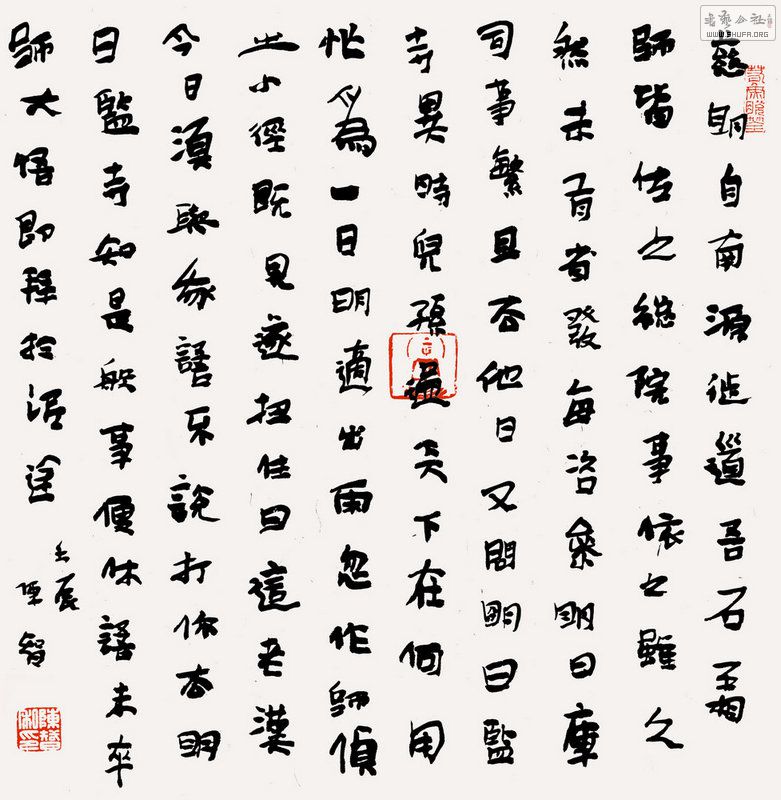 慈明自南源徙道吾石霜
師皆佐之總院事依之雖久
然未有省發每咨參明曰庫
司事繁且去他日又問明曰監
寺異時兒孫遍天下在何用
忙為一日明適出雨忽作師偵
之小徑既見遂扭住曰這老漢
今日須與我語不說打你去明
曰監寺知是般事便休語未卒
師大悟即拜於泥途
壬辰
陳智
書藝公社
WWW.SHUFA.ORG